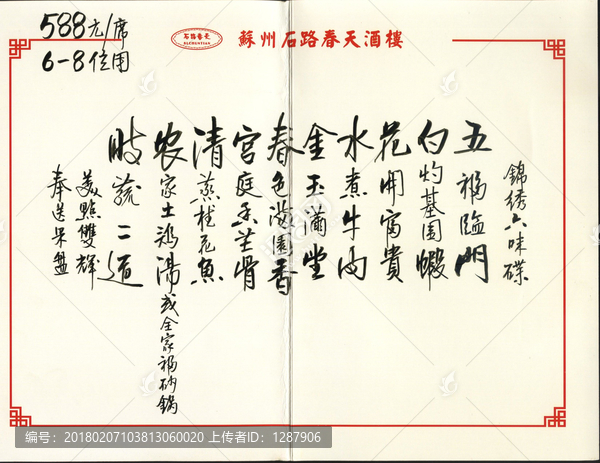 588元/席
6-8位用
石路春天
蘇州石路春天酒樓
錦绣六味碟
五福臨門
白灼基围蝦
花開富貴
水煮牛肉
金玉滿堂
春色滿園香
宮庭香芏骨
清蒸桂花魚
农家土鸡湯或全家福砂鍋
時蔬二道
美點雙輝
奉送果盤
编号：20180207103813060020 上传者ID：1287906